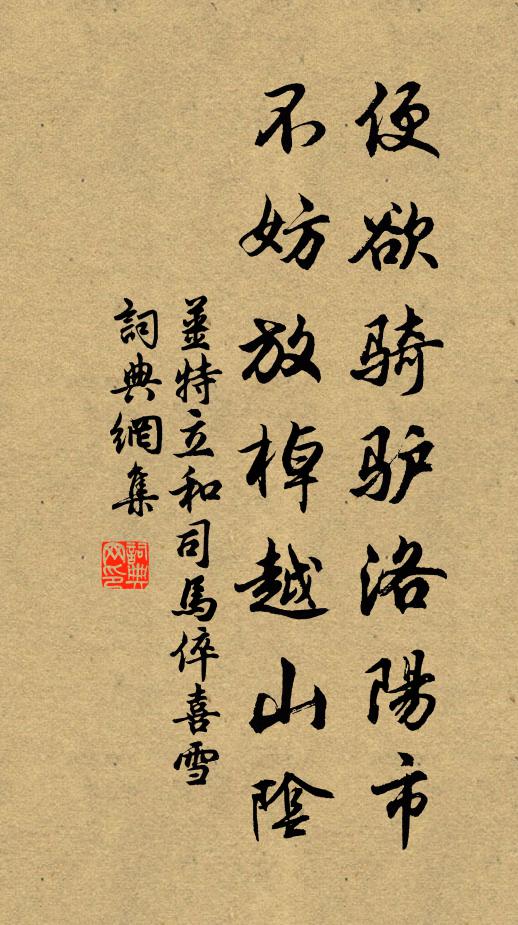 便欲骑驴洛陽市
不妨放棹越山陰
姜特立和司馬倅喜雪
詞典網集
詞典網印